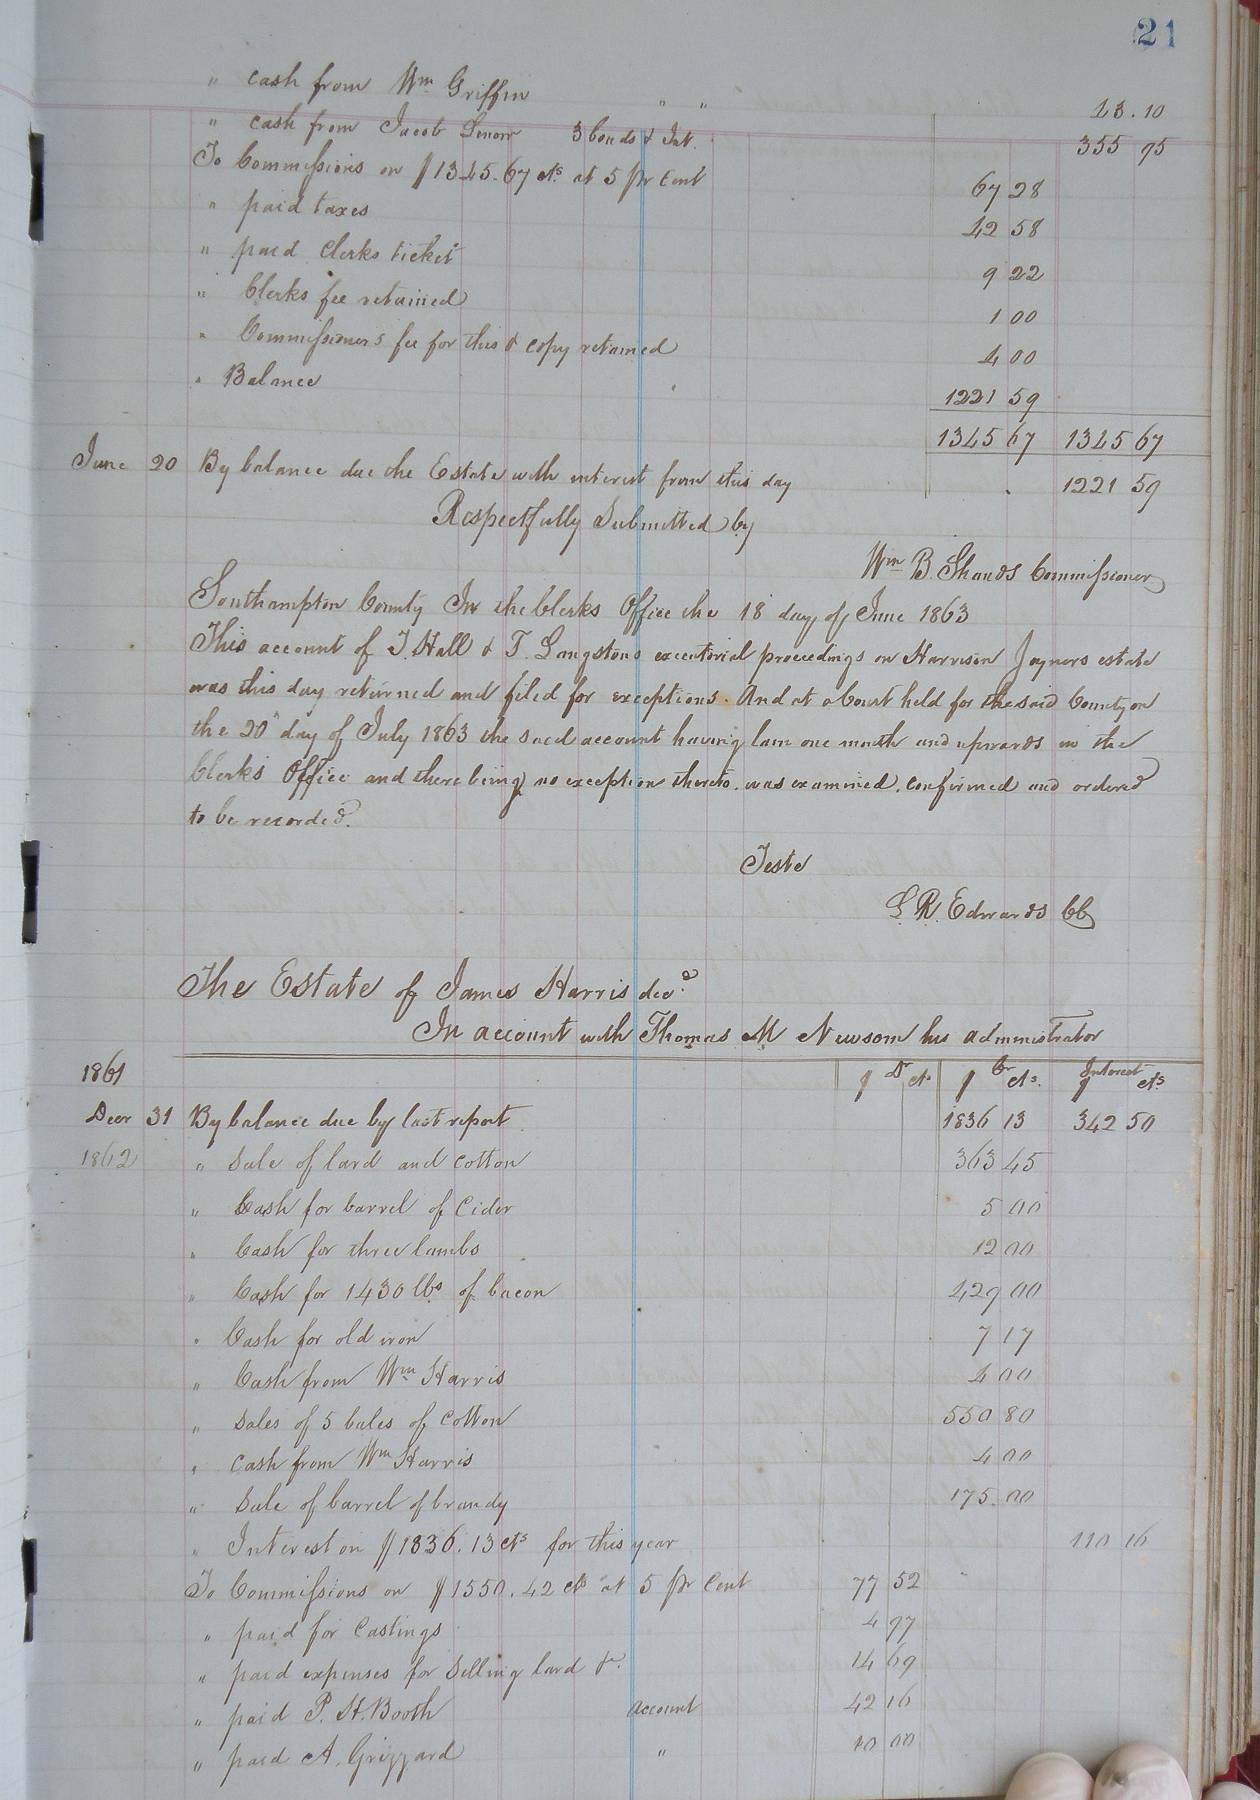 21
" cash from Wm Griffin " " 43.10
" cash from Jacob 3 bonds & Int. 355 95
To Commissions on $1345.67 cts at 5 pr Cent 67 28
" paid taxes 42 58
" paid Clerks ticket 9 22
" Clerks fee retained 1 00
" Commissioners fee for this & copy retained 4 00
" Balance 1221 59
1345 67 1345 67
June 20 By balance due the Estate with interest from this day 1221 59
Respectfully Submitted by
Wm B. Shands Commissioner
Southampton County In the Clerks Office the 18 day of June 1863
This account of J. Hall & T. Langstons executorial proceedings on Harrison Joyners estate
was this day returned and filed for exceptions. And at a Court held for the said County on
the 20" day of July 1863 the said account having lain one month and upwards in the
Clerks Office and there being no exception thereto, was examined, confirmed and ordered
to be recorded.
Teste
L R. Edwards CC
The Estate of James Harris decd.
In account with Thomas M Newsom his administrator
1861 $ Dr cts $ Cr cts. Interest $ cts
Decr 31 By balance due by last report 1836 13 342 50
1862 " Sale of lard and cotton 363 45
" Cash for barrel of Cider 5 00
" Cash for three lambs 12 00
" Cash for 1430 lbs of bacon 429 00
" Cash for old iron 7 17
" Cash from Wm Harris 4 00
" Sales of 5 bales of Cotton 550 80
" cash from Wm Harris 4 00
" Sale of barrel of brandy 175.00
" Interest on $1836.13 cts for this year 110 16
To Commissions on $1550.42 cts at 5 pr Cent 77 52
" paid for Castings 4 97
" paid expenses for Selling lard &c. 14 69
" paid P. H. Booth account 42 16
" paid A. Grizzard " 10 00